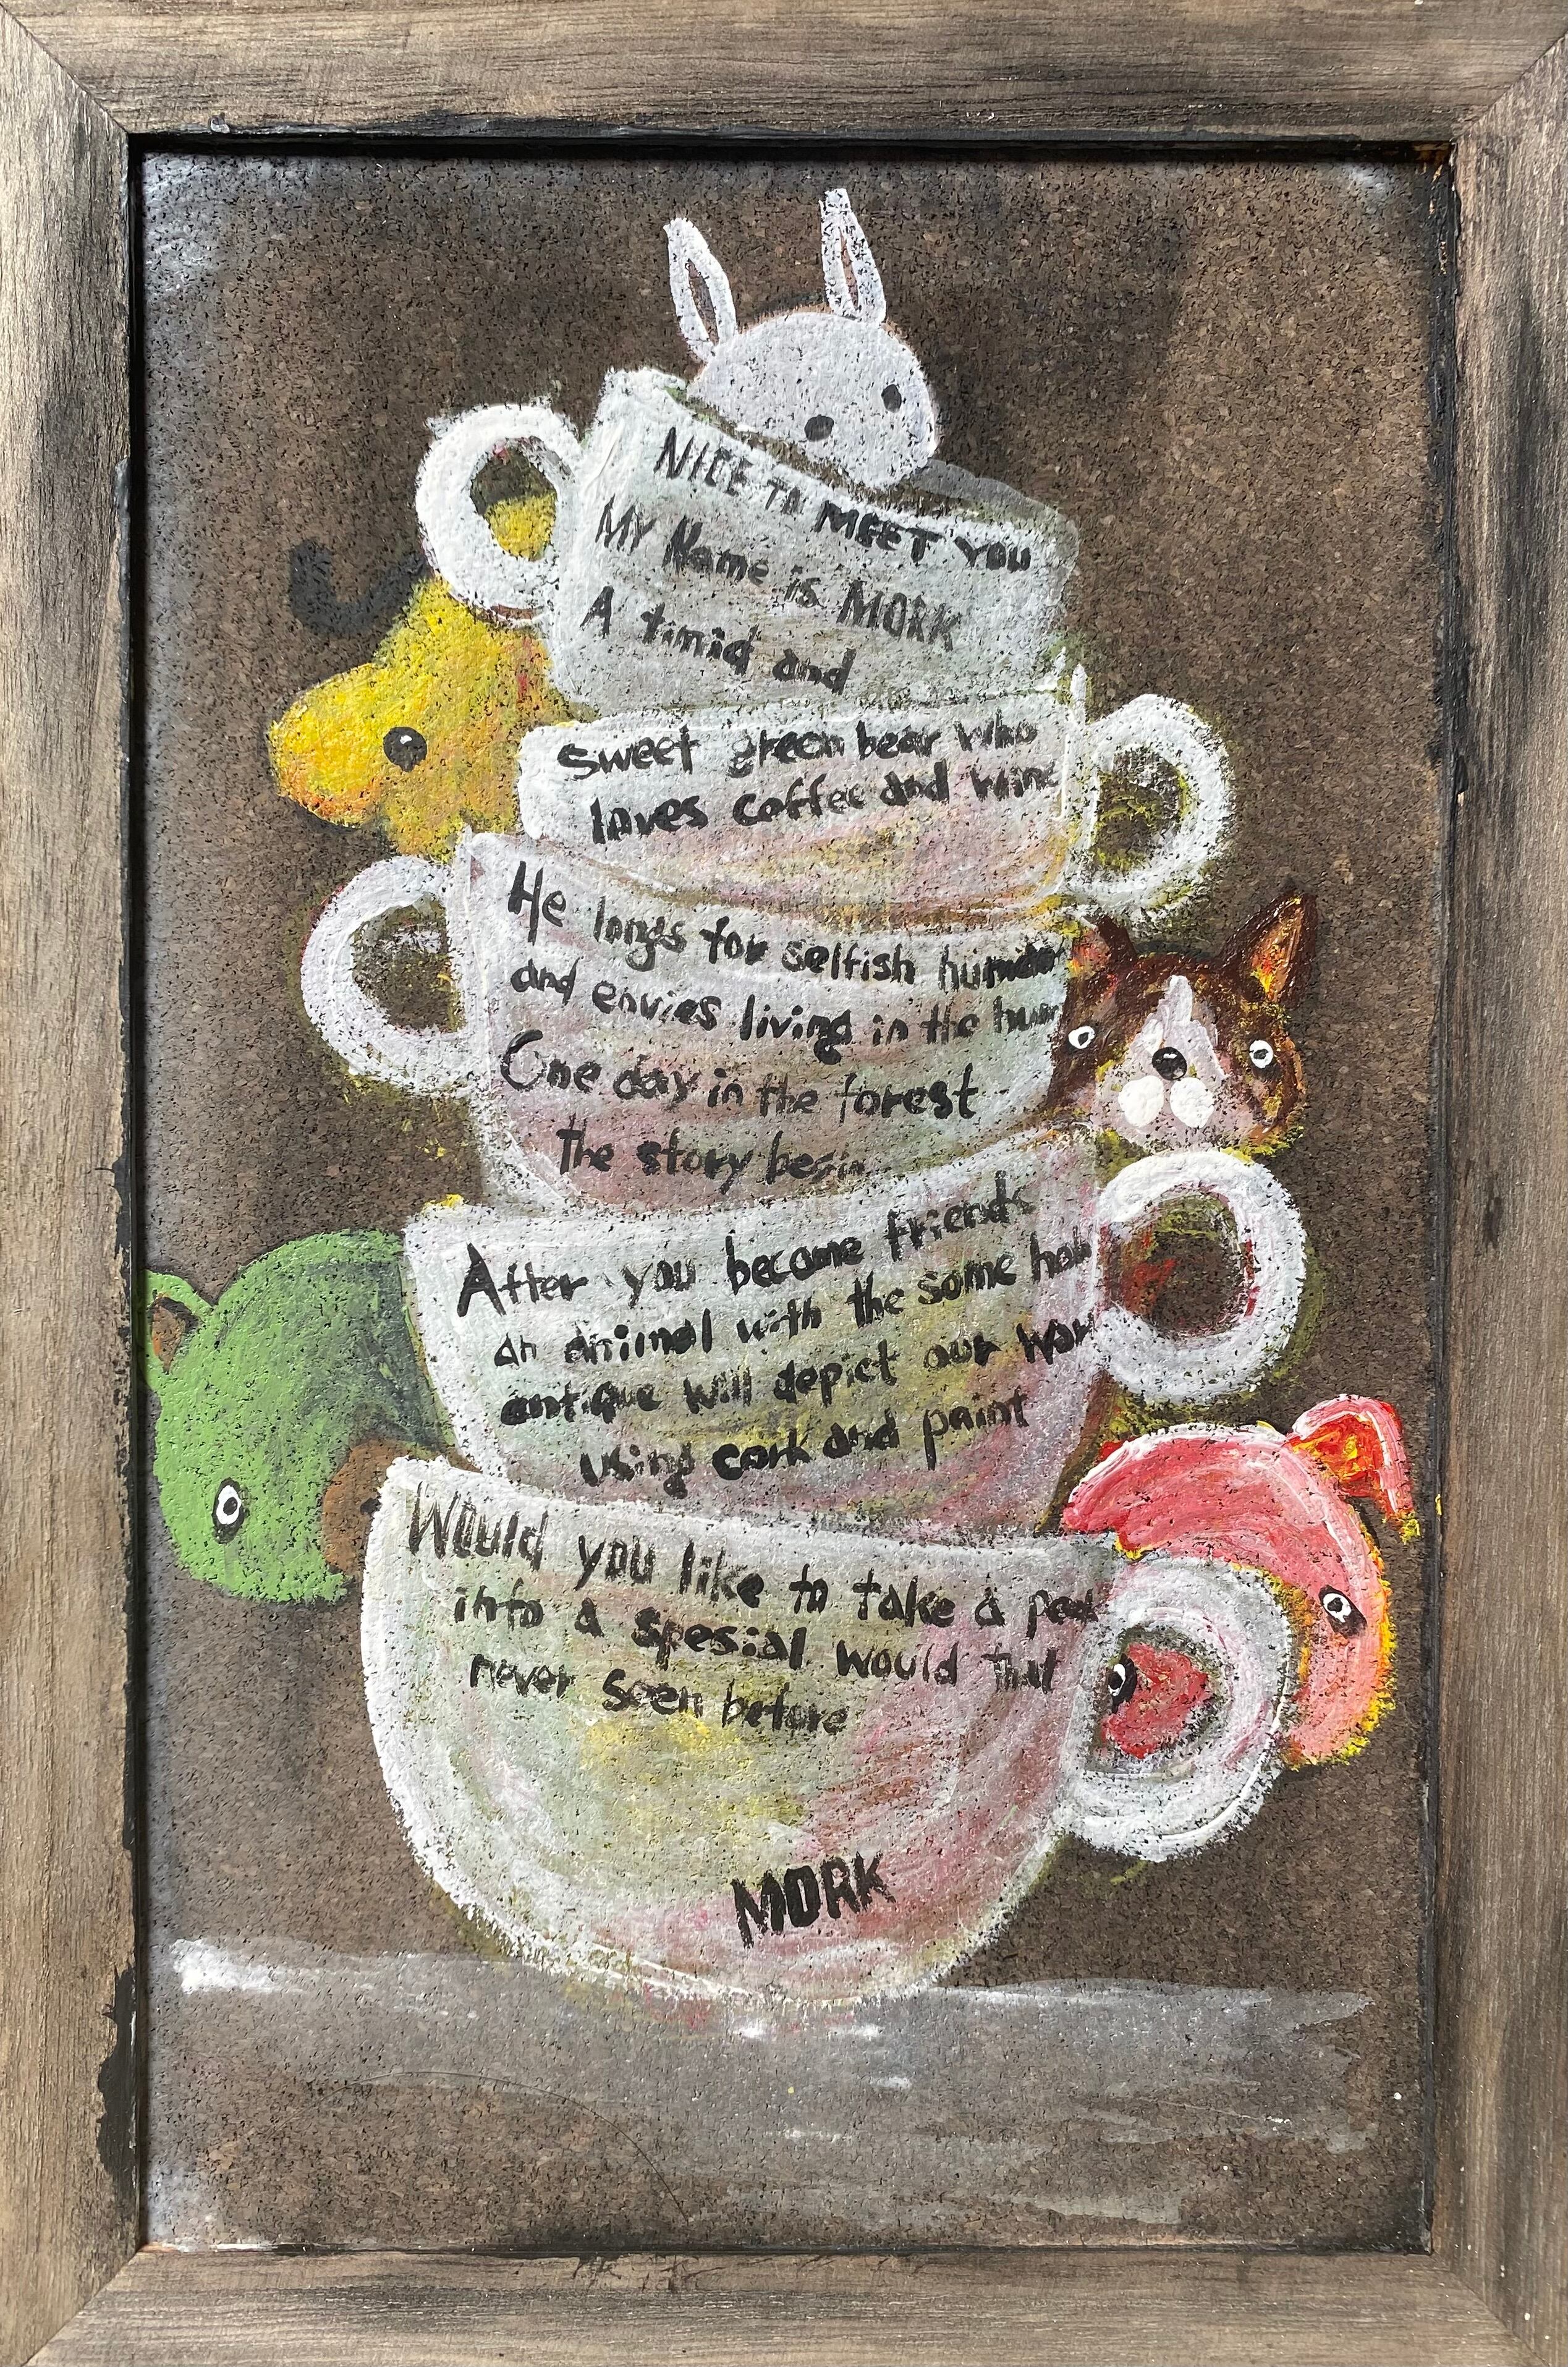 NICE TO MEET YOU
MY Name is MORK
A timid and
sweet green bear who
loves coffee and wine
He longs for selfish human
and envies living in the hum
One day in the forest
The story begin
After you become friends
an animal with the some hob
antique will depict our wor
using cork and paint
Would you like to take a peek
into a spesial would that
never seen before
MORK